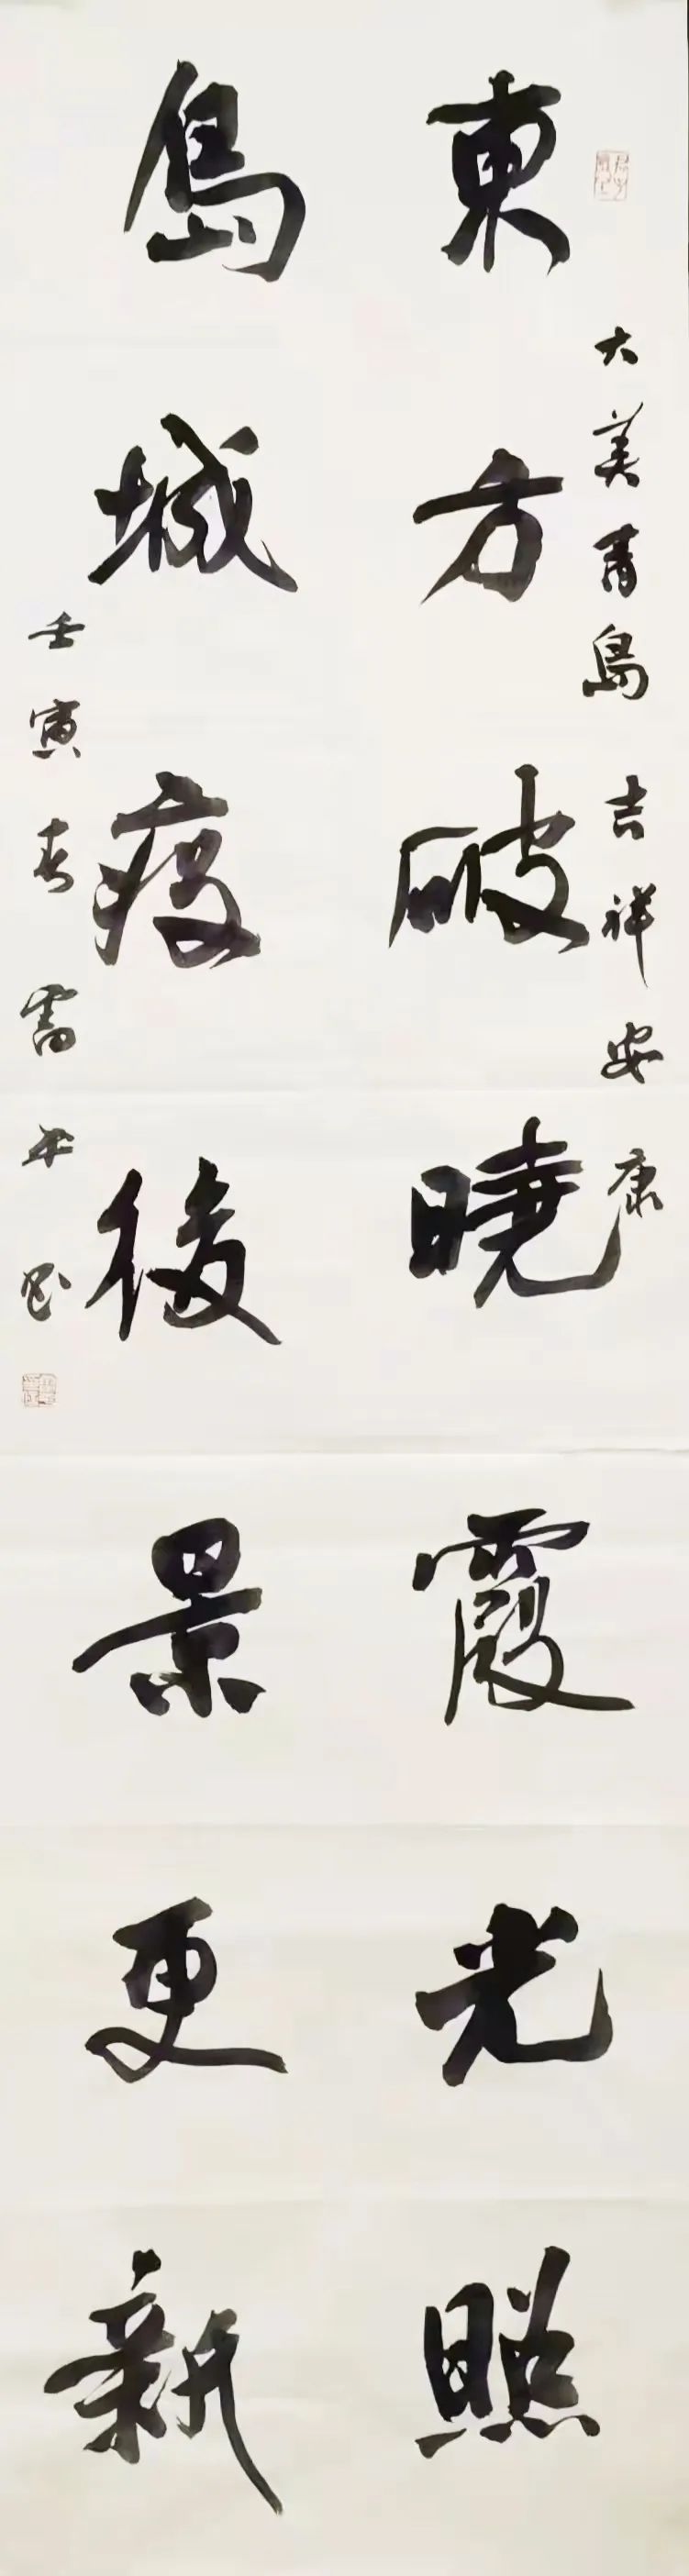 大美青島 吉祥安康
東方破曉霞光照
島城疫後景更新
壬寅春雷